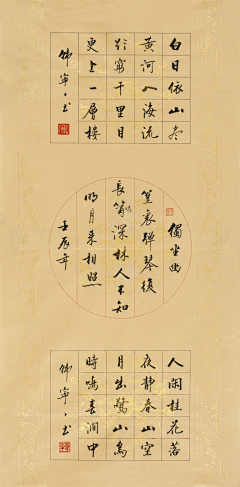 白日依山尽
黄河入海流
欲窮千里目
更上一層樓
獨坐幽
篁裏彈琴復
長嘯深林人不知
明月来相照
壬辰年
人闲桂花落
夜静春山空
月出驚山鳥
時鳴春澗中